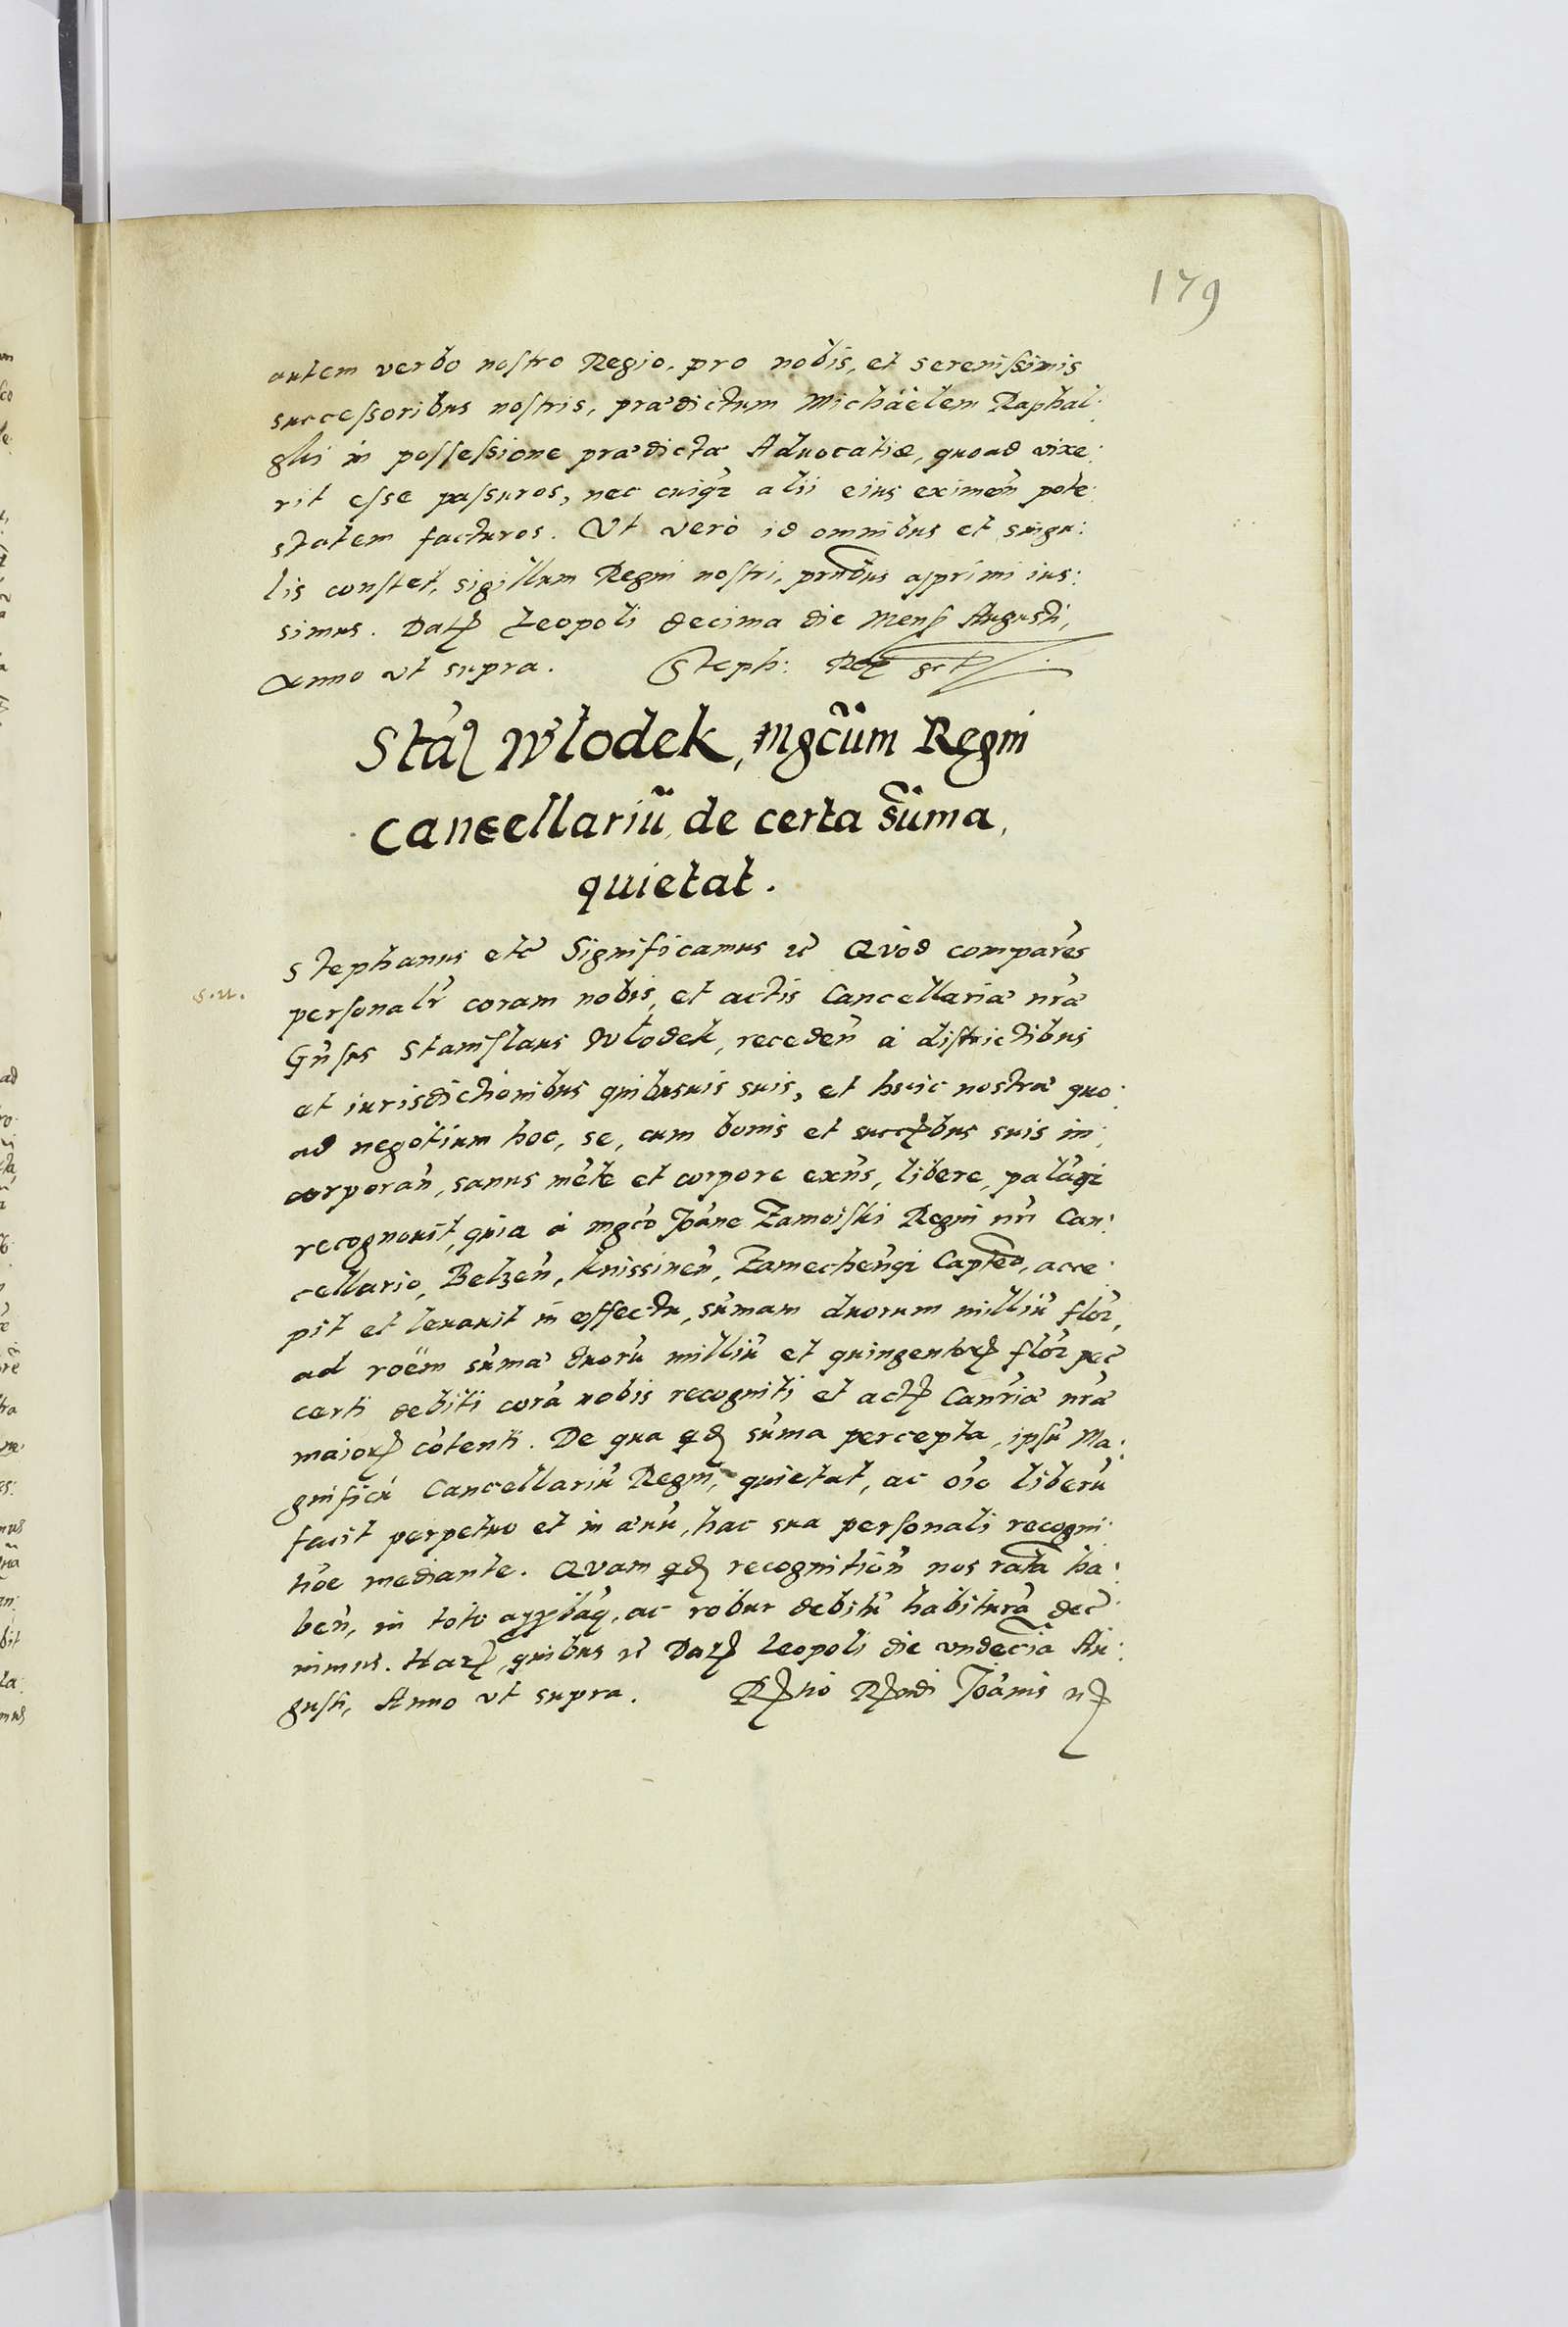 179
autem verbo nostro Regio, pro nobis, et serenissimis
successoribus nostris, prædictum Michäelem Raphal:
glii in possessione prædictæ Aduocatiæ, quoad vixe:
rit esse passuros, nec cuiqz alii eius eximen̄ pote:
statem facturos. Vt verò id omnibus et singu:
lis constet, sigillum Regni nostri, pn̄tibus apprimi ius:
simus. Datꝭ Leopoli decima die Mensꝭ Augusti,
Anno vt supra. Steph: Rex
Staꝰ Włodek, Mgcūm Regni
Cancellariū, de certa sūma,
quietat.
Stephanus etc̄ Significamus &c̄ Qvod comparēs
s.n.
personalr̄ coram nobis, et actis Cancellariæ nr̄æ
Gn̄sus Stanislaus Włodek, receden̄ à districtibus
et iurisdictionibus quibusuis suis, et huic nostræ quo:
ad negotium hoc, se, cum bonis et succꝭbus suis in:
corporan̄, sanus mēte et corpore exn̄s, libere, palāqz
recognouit, quia à mgco Joāne Zamoiski Regni nr̄i Can:
cellario, Belzen̄, Knissinen̄, Zamechen̄qz Capteo, acce:
pit et leuauit in effectu, sūmam duorum milliū flor̄,
ad roēm sūmæ duorū milliū et quingentorꝭ flor̄ pec̄
certi debiti corā nobis recogniti et actꝭ Canr̄iæ nr̄æ
maiorꝭ cōtenti. De qua qdꝭ sūma percepta, ipsū Ma:
gnificū Cancellariū Regni, quietat, ac oīo liberū
facit perpetuo et in æuū, hac sua personali recogni:
tiōe mediante. Qvam qdꝭ recognition̄ nos rata ha:
ben̄, in toto approbāq, ac robur debitū habiturā dec̄:
nimus. Harꝭ quibus &c̄ Datꝭ Leopoli die vndecīa Au:
gusti, Anno vt supra. Rꝭtio Rꝭndi Joānis